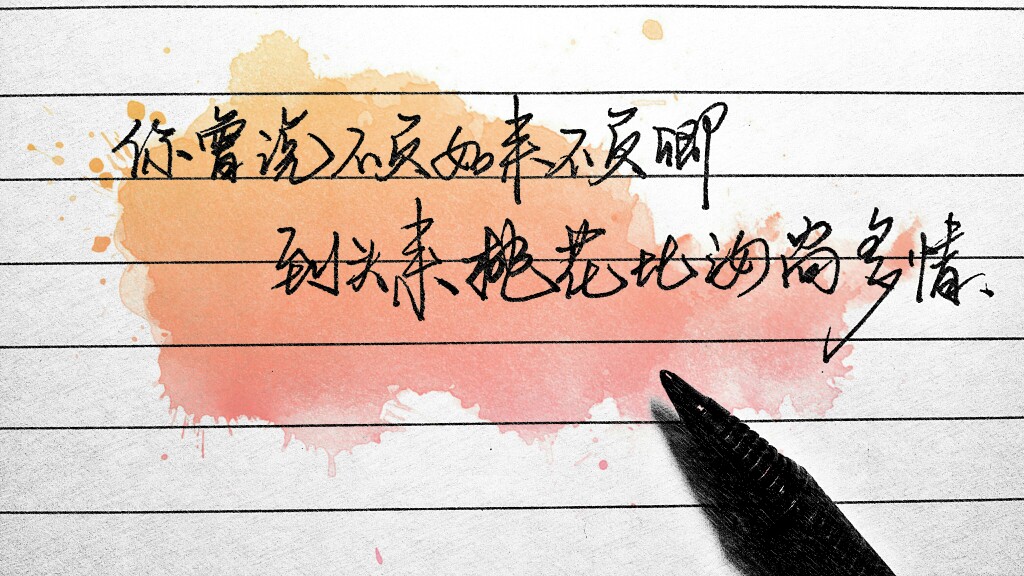 你曾说不负如来不负卿
到头来桃花比汝尚多情、